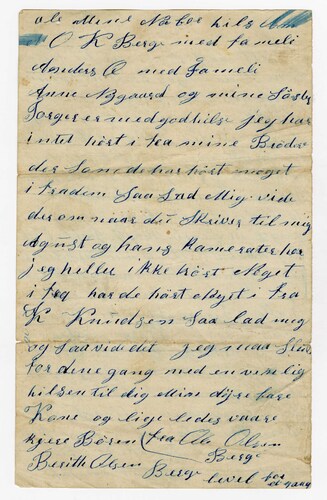 ale Mine Naboe hils
O K Berge med fameli
Anders O med Fameli
Anne Nygaard og mine
er med god hilse jeg har
intet hört i fra mine Bröder
der Som de har hört noget
i fra dem Saa Lad Mig vide
der om naar du Skriver til mig
Agust og hans Kamerater har
jeg heller ikke hört Noget
i fra har de hört Noget i fra
K Knudsen Saa lad meg
og Saa vide det jeg maa Slute
for denne gang med en venlig
hilsen til dig Min dyrebare
Kone og lige ledes vaare
kjere Bören fra Ole Olsen
Berge
Berith Olsen Berge
level for
en gang